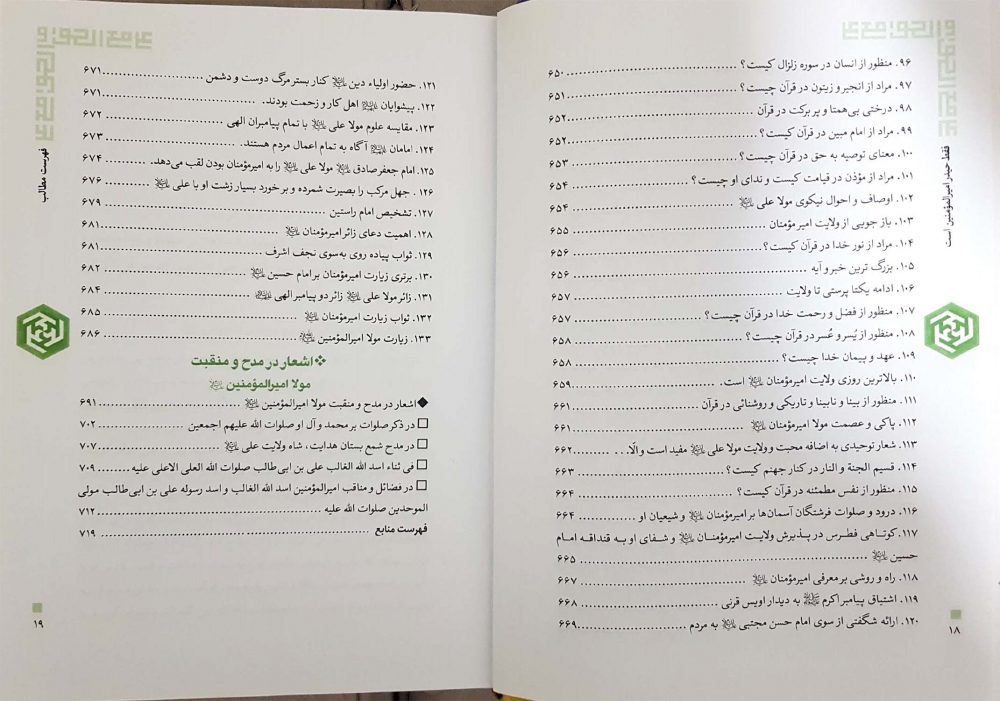 فقط حیدر امیرالمؤمنین است
۹۶. منظور از انسان در سوره زلزال کیست؟ ۶۵۰
۹۷. مراد از انجیر و زیتون در قرآن چیست؟ ۶۵۱
۹۸. درختی بی‌همتا و پر برکت در قرآن ۶۵۲
۹۹. مراد از امام مبین در قرآن کیست؟ ۶۵۲
۱۰۰. معنای توصیه به حق در قرآن چیست؟ ۶۵۳
۱۰۱. مراد از مؤذن در قیامت کیست و ندای او چیست؟ ۶۵۴
۱۰۲. اوصاف و احوال نیکوی مولا علی ۶۵۴
۱۰۳. باز جویی از ولایت امیر مؤمنان ۶۵۵
۱۰۴. مراد از نور خدا در قرآن کیست؟ ۶۵۶
۱۰۵. بزرگ ترین خبر و آیه ۶۵۶
۱۰۶. ادامه یکتا پرستی تا ولایت ۶۵۷
۱۰۷. منظور از فضل و رحمت خدا در قرآن چیست؟ ۶۵۷
۱۰۸. منظور از یُسر و عُسر در قرآن چیست؟ ۶۵۸
۱۰۹. عهد و پیمان خدا چیست؟ ۶۵۸
۱۱۰. بالاترین روزی ولایت امیرمؤمنان است. ۶۵۹
۱۱۱. منظور از بینا و نابینا و تاریکی و روشنائی در قرآن ۶۶۱
۱۱۲. پاکی و عصمت مولا امیرمؤمنان ۶۶۱
۱۱۳. شعار توحیدی به اضافه محبت و ولایت مولا علی مفید است و الّا... ۶۶۲
۱۱۴. قسیم الجنة و النار در کنار جهنم کیست؟ ۶۶۳
۱۱۵. منظور از نفس مطمئنه در قرآن کیست؟ ۶۶۴
۱۱۶. درود و صلوات فرشتگان آسمان‌ها بر امیرمؤمنان و شیعیان او ۶۶۴
۱۱۷. کوتاهی فطرس در پذیرش ولایت امیرمؤمنان و شفای او به قنداقه امام
حسین ۶۶۵
۱۱۸. راه و روشی بر معرفی امیرمؤمنان ۶۶۷
۱۱۹. اشتیاق پیامبر اکرم به دیدار اویس قرنی ۶۶۸
۱۲۰. ارائه شگفتی از سوی امام حسن مجتبی به مردم ۶۶۹
۱۸
فهرست مطالب
۱۲۱. حضور اولیاء دین کنار بستر مرگ دوست و دشمن ۶۷۱
۱۲۲. پیشوایان اهل کار و زحمت بودند. ۶۷۱
۱۲۳. مقایسه علوم مولا علی با تمام پیامبران الهی ۶۷۲
۱۲۴. امامان آگاه به تمام اعمال مردم هستند. ۶۷۳
۱۲۵. امام جعفر صادق مولا علی را به امیرمؤمنان بودن لقب می‌دهد. ۶۷۴
۱۲۶. جهل مرکب را بصیرت شمرده و برخورد بسیار زشت او با علی ۶۷۶
۱۲۷. تشخیص امام راستین ۶۷۹
۱۲۸. اهمیت دعای زائر امیرمؤمنان ۶۸۱
۱۲۹. ثواب پیاده روی به‌سوی نجف اشرف ۶۸۱
۱۳۰. برتری زیارت امیرمؤمنان بر امام حسین ۶۸۲
۱۳۱. زائر مولا علی زائر دو پیامبر الهی ۶۸۴
۱۳۲. ثواب زیارت امیرمؤمنان ۶۸۵
۱۳۳. زیارت مولا امیرالمؤمنین ۶۸۶
❖ اشعار در مدح و منقبت
مولا امیرالمؤمنین
◆ اشعار در مدح و منقبت مولا امیرالمؤمنین ۶۹۱
□ در ذکر صلوات بر محمد و آل او صلوات الله علیهم اجمعین ۷۰۲
□ در مدح شمع بستان هدایت، شاه ولایت علی ۷۰۷
□ فی ثناء اسد الله الغالب علی بن ابی‌طالب صلوات الله العلی الاعلی علیه ۷۰۹
□ در فضائل و مناقب امیرالمؤمنین اسد الله الغالب و اسد رسوله علی بن ابی‌طالب مولی
الموحدین صلوات الله علیه ۷۱۲
فهرست منابع ۷۱۹
۱۹